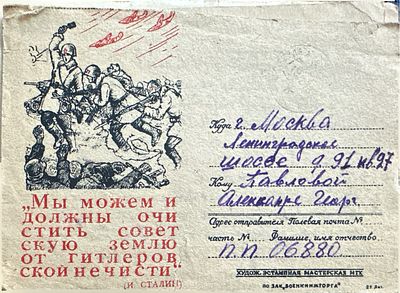 „Мы можем и
должны очи
стить совет
скую землю
от гитлеров
ской нечисти“
(И. СТАЛИН)
Куда г. Москва
Ленинградское
шоссе д. 91 кв. 27
Кому Павловой
Александре Георг
Адрес отправителя Полевая почта №
часть № Фамилие, имя отчество
П.П. 06880.
ХУДОЖ. ЭСТАМПНАЯ МАСТЕРСКАЯ МТХ
ПО ЗАК. „ВОЕНКНИГТОРГА“